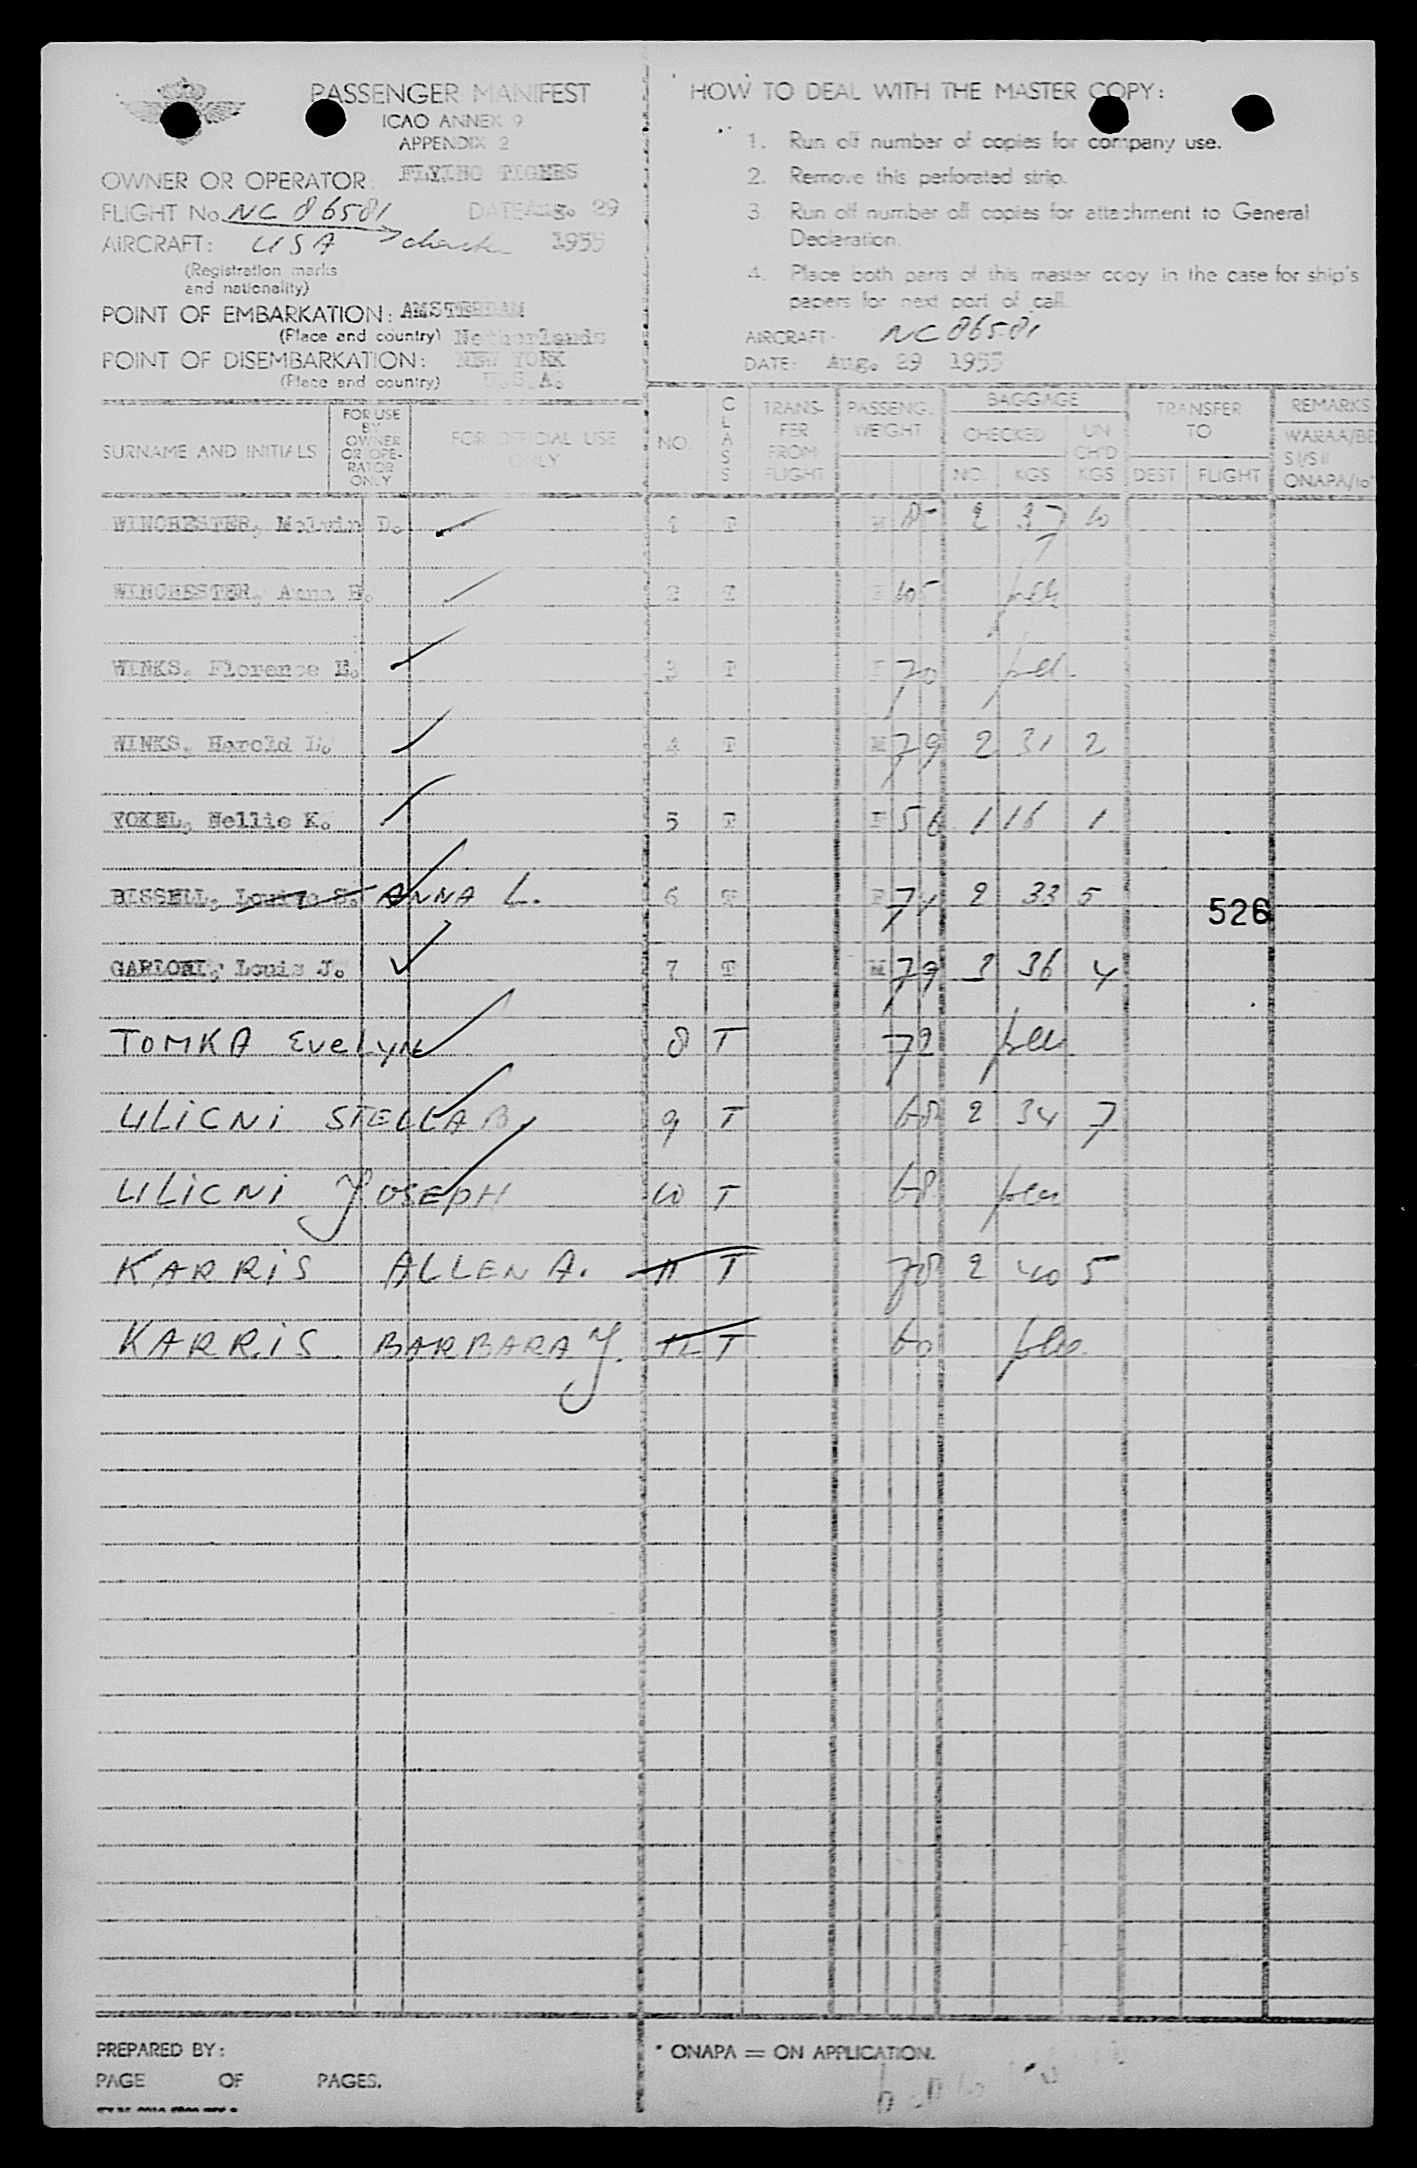 PASSENGER MANIFEST
ICAO ANNEX 9
APPENDIX 2
OWNER OR OPERATOR: FLYING TIGERS
FLIGHT No. NC 86581 DATE Aug. 29
AIRCRAFT: USA 1955
(Registration marks
and nationality)
POINT OF EMBARKATION: AMSTERDAM
(Place and country) Netherlands
POINT OF DISEMBARKATION: NEW YORK
(Place and country) U.S.A.
HOW TO DEAL WITH THE MASTER COPY:
1. Run off number of copies for company use.
2. Remove this perforated strip.
3. Run off number off copies for attachment to General
Declaration.
4. Place both parts of this master copy in the case for ship's
papers for next port of call.
AIRCRAFT: NC 86581
DATE: Aug. 29 1955
SURNAME AND INITIALS
FOR USE
BY
OWNER
OR OPE-
RATOR
ONLY
FOR OFFICIAL USE
ONLY
NO.
CLASS
TRANS-
FER
FROM
FLIGHT
PASSENG.
WEIGHT
BAGGAGE
CHECKED
NO. KGS
UN
CH'D
KGS
TRANSFER
TO
DEST FLIGHT
REMARKS
ONAPA/
WINCHESTER, Melvin D. 1 T M 85 2 37 10
WINCHESTER, Anna E. 2 T F 65
WINKS, Florence E. 3 T F 70
WINKS, Harold L. 4 T M 79 2 31 2
YOKEL, Nellie K. 5 T F 56 1 16 1
BISSELL, ANNA L. 6 T F 71 2 33 5
526
GARLONI, Louis J. 7 T M 79 3 36 4
TOMKA Evelyn 8 T 72
ULICNI STELLA B. 9 T 68 2 34 7
ULICNI JOSEPH 10 T 68
KARRIS ALLEN A. 11 T 78 2 40 5
KARRIS BARBARA J. 12 T 60
PREPARED BY:
PAGE OF PAGES.
* ONAPA = ON APPLICATION.